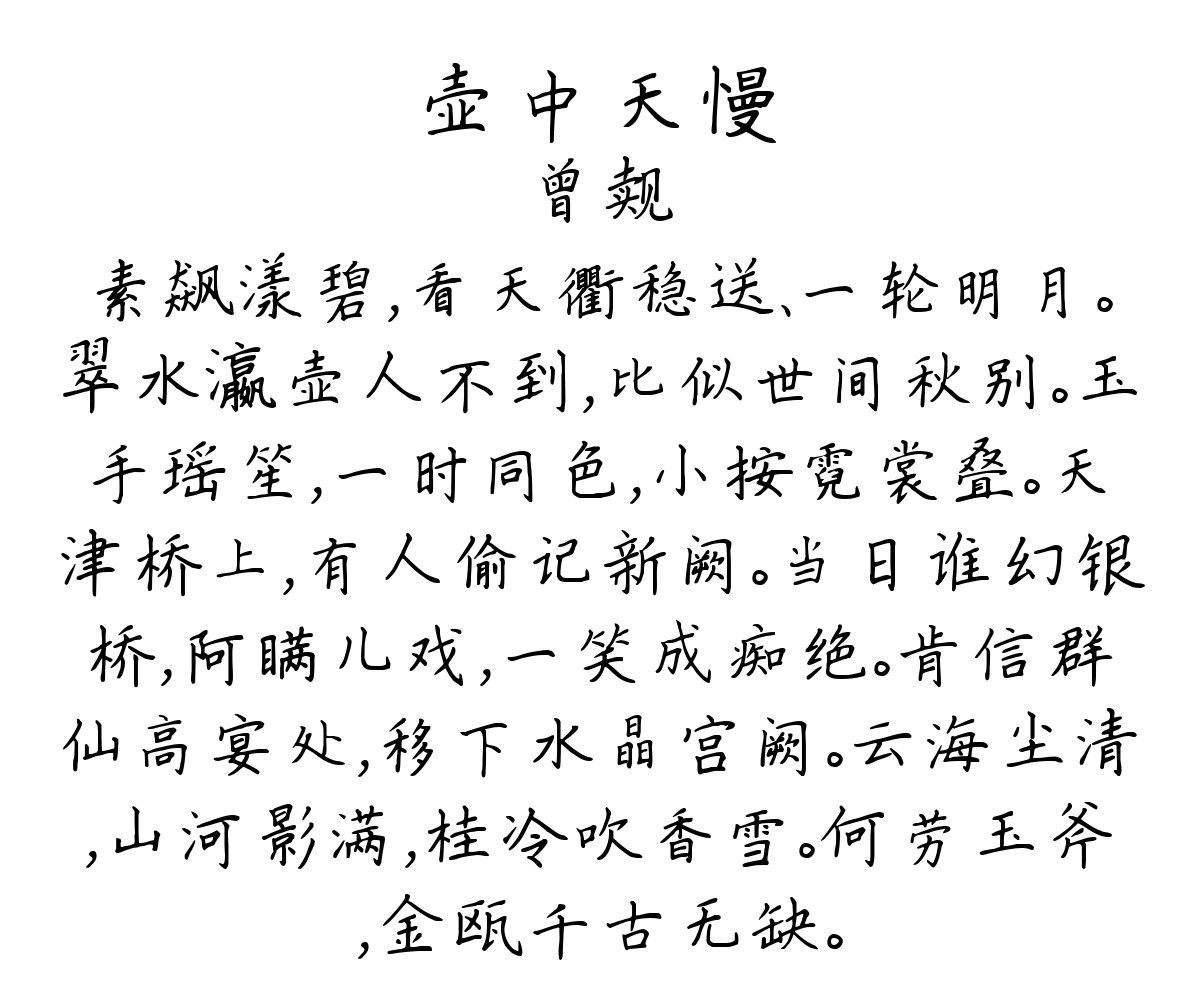 壶中天慢
曾觌
素飙漾碧,看天衢稳送、一轮明月。
翠水瀛壶人不到,比似世间秋别。玉
手瑶笙,一时同色,小按霓裳叠。天
津桥上,有人偷记新阙。当日谁幻银
桥,阿瞒儿戏,一笑成痴绝。肯信群
仙高宴处,移下水晶宫阙。云海尘清
,山河影满,桂冷吹香雪。何劳玉斧
,金瓯千古无缺。